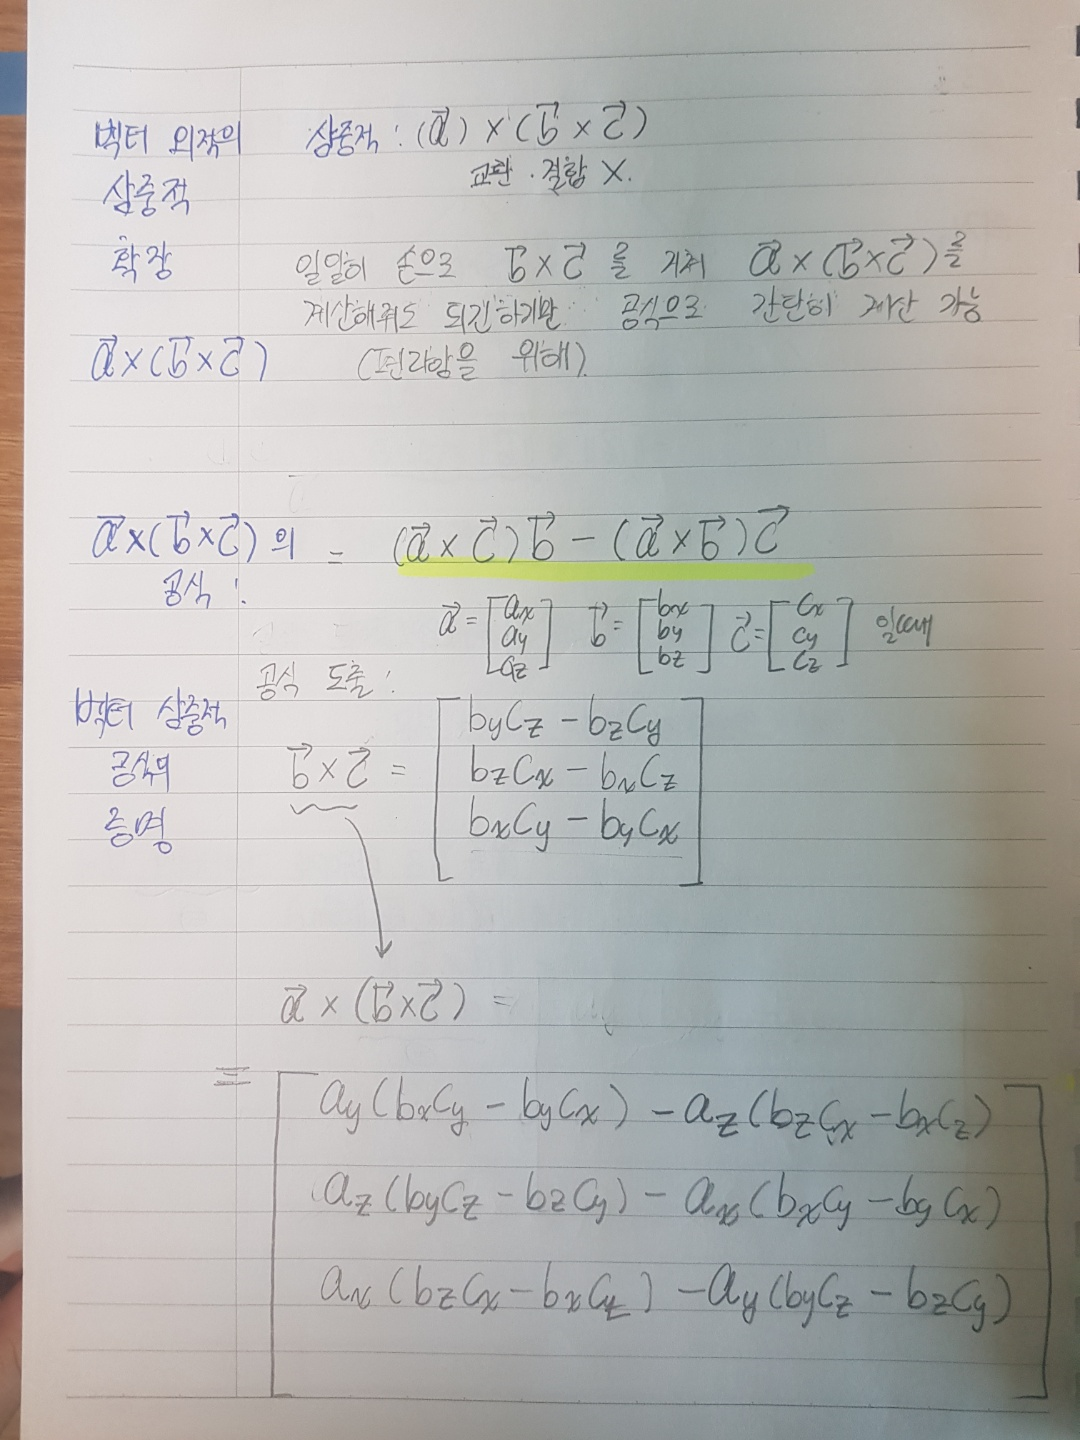 벡터 외적의 삼중적 : (a⃗) × (b⃗ × c⃗)
삼중적 교환 · 결합 X.
확장 일일히 손으로 b⃗ × c⃗ 를 거쳐 a⃗ × (b⃗×c⃗)를
계산해줘도 되긴하지만 공식으로 간단히 계산 가능
a⃗×(b⃗×c⃗) (편리함을 위해)
a⃗×(b⃗×c⃗)의 = (a⃗ × c⃗)b⃗ − (a⃗ × b⃗)c⃗
공식 :
a⃗ = [ax ay az] b⃗ = [bx by bz] c⃗ = [cx cy cz] 일때
공식 도출 :
벡터 삼중적
공식의
증명
b⃗ × c⃗ =
byCz − bzCy
bzCx − bxCz
bxCy − byCx
a⃗ × (b⃗×c⃗) =
=
ay(bxCy − byCx) − az(bzCx − bxCz)
az(byCz − bzCy) − ax(bxCy − byCx)
ax(bzCx − bxCz) − ay(byCz − bzCy)